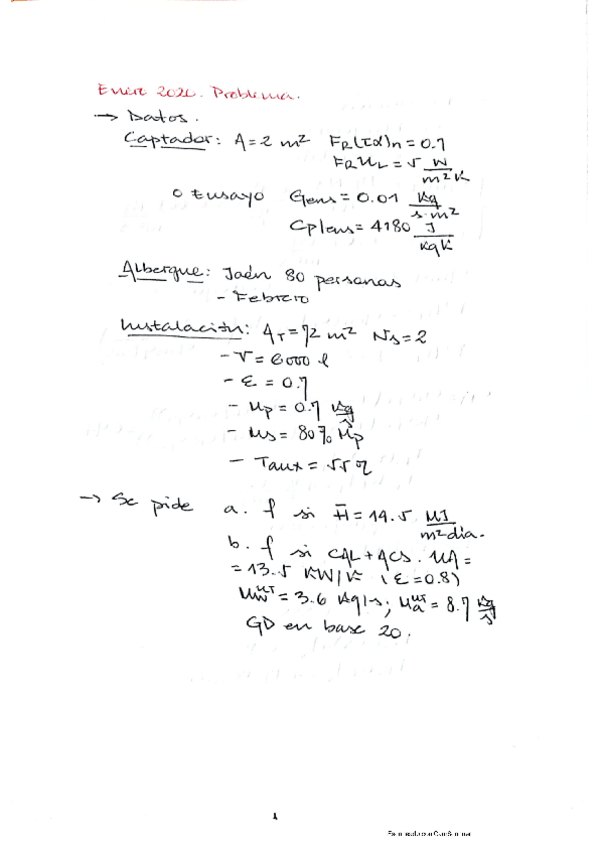 Enero 2020. Problema.
→ Datos.
Captador: A=2 m² FR(τα)n = 0.7
FRUL = 5 W/m²K
o Ensayo Gens = 0.01 Kg/s·m²
Cpens = 4180 J/KgK
Albergue: Jaén 80 personas
- Febrero
Instalación: AT = 72 m² Ns = 2
- V = 6000 l
- ε = 0.7
- Mp = 0.7 Kg/s
- Ms = 80% Mp
- Taux = 55 ºC
→ Se pide a. f si H̅ = 14.5 MJ/m²dia.
b. f si CAL + ACS. UA =
= 13.5 KW/K (ε=0.8)
= 3.6 Kg/s; = 8.7 Kg/s
GD en base 20.
1